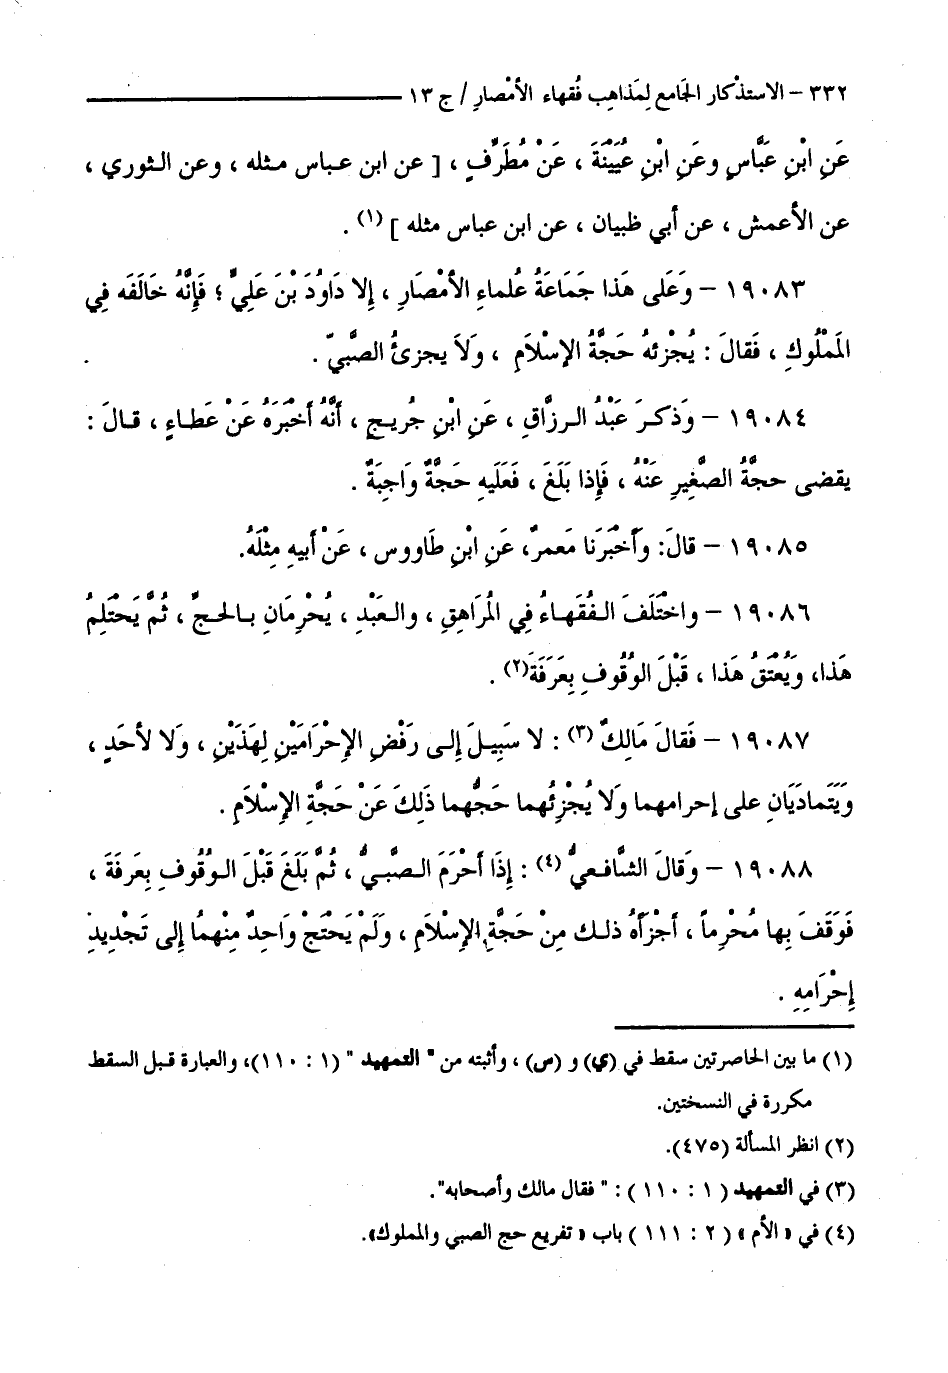 ٣٣٢ – الاستذْكار الجَامع لِمَذاهِب فُقهاء الأمْصارِ / ج ١٣
عَنِ ابْنِ عَبَّاسٍ وعَنِ ابْنِ عُيَيْنَةَ ، عَنْ مُطَرِّفٍ ، [ عن ابن عباس مثله ، وعن الثوري ،
عن الأعمش ، عن أبي ظبيان ، عن ابن عباس مثله ] (١) .
١٩٠٨٣ – وَعَلى هَذا جَمَاعَةُ عُلماءِ الأمْصَارِ ، إِلا دَاوُدَ بْنَ عَلِيٍّ ؛ فَإِنَّهُ خَالَفَه فِي
المَمْلُوكِ ، فَقالَ : يُجْزئهُ حَجَّةُ الإِسْلَامِ ، وَلَا يجزئُ الصَّبِيّ .
١٩٠٨٤ – وَذكرَ عَبْدُ الرزَّاقِ ، عَنِ ابْنِ جُريجٍ ، أنَّهُ أخْبَرَهُ عَنْ عَطاءٍ ، قالَ :
يقضى حجَّةُ الصَّغِيرِ عَنْهُ ، فَإِذا بَلَغَ ، فَعَلَيهِ حَجَّةٌ وَاجِبَةٌ .
١٩٠٨٥ – قالَ: وَأخْبَرَنا مَعمرٌ، عَنِ ابْنِ طَاووس ، عَنْ أبيهِ مِثْلَهُ.
١٩٠٨٦ – واخْتَلَفَ الفُقَهاءُ فِي المُرَاهِقِ ، والعَبْدِ ، يُحْرِمَانِ بالحجِّ ، ثُمَّ يَحْتَلِمُ
هَذا، وَيُعْتَقُ هَذا ، قَبْلَ الوُقُوفِ بِعَرَفَةَ(٢) .
١٩٠٨٧ – فَقالَ مَالِكٌ (٣) : لا سَبِيلَ إِلى رَفْضِ الإِحْرَامَيْنِ لِهَذَيْنِ ، وَلا لأحَدٍ ،
وَيَتَمادَيَانِ على إحرامهما وَلَا يُجْزِئُهما حَجُّهما ذَلِكَ عَنْ حَجَّةِ الإِسْلَامِ .
١٩٠٨٨ – وَقالَ الشَّافعيُّ (٤) : إِذَا أحْرَمَ الصَّبيُّ ، ثُمَّ بَلَغَ قَبْلَ الوُقُوفِ بِعَرفَةَ ،
فَوَقَفَ بِها مُحْرِماً ، أجْزَأهُ ذلك مِنْ حَجَّةِ الإِسْلَامِ ، وَلَمْ يَحْتَجْ وَاحِدٌ مِنْهمُا إِلى تَجْدِيدِ
إِحْرَامِهِ .
(١) ما بين الحاصرتين سقط في (ي) و (س) ، وأثبته من " التمهيد " (١ : ١١٠)، والعبارة قبل السقط
مكررة في النسختين.
(٢) انظر المسألة (٤٧٥).
(٣) في التمهيد ( ١ : ١١٠ ) : " فقال مالك وأصحابه".
(٤) في « الأم » ( ٢ : ١١١ ) باب « تفريع حج الصبي والمملوك».